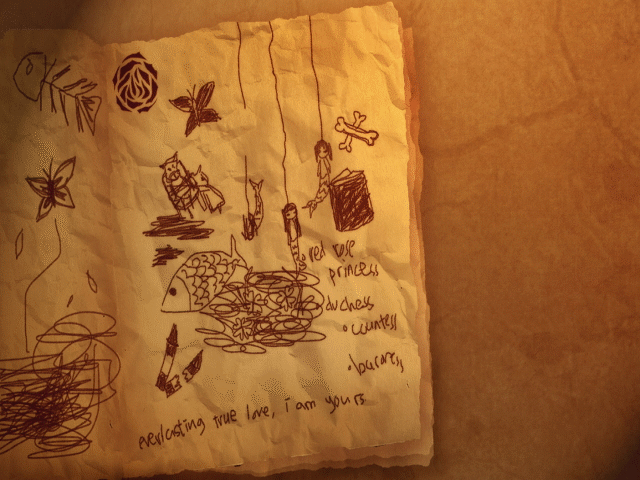 red rose
princess
duchess
countess
baroness
everlasting true love, i am yours